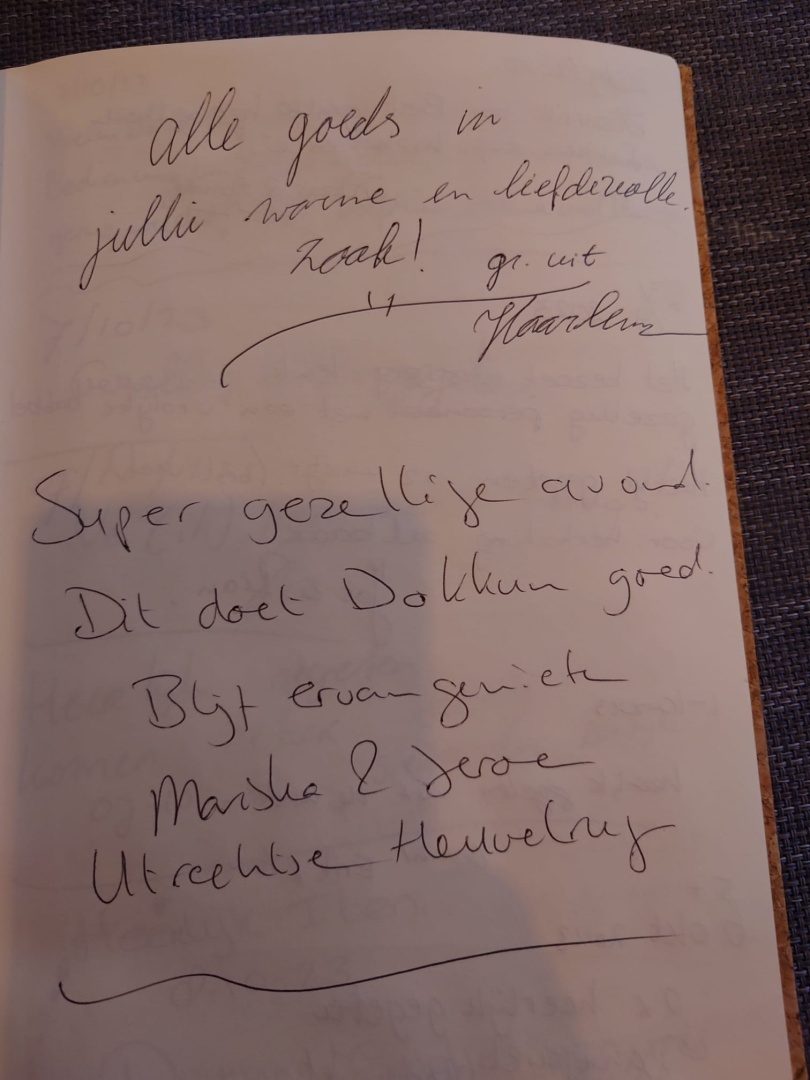 alle goeds in
jullie warme en liefdevolle
zaak! gr. uit
Haarlem
Super gezellige avond.
Dit doet Dokkum goed.
Blijf ervan genieten
Mariska & Jeroen
Utrechtse Heuvelrug